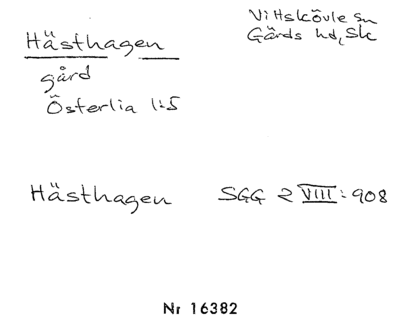 Hästhagen
Vittskövle sn
Gärds hd, Sk
gård
Österlia 1:5
Hästhagen SGG 2 VIII: 908
Nr 16382